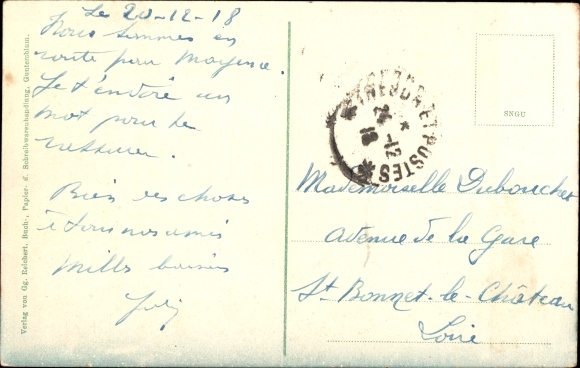 Le 20-12-18
Nous sommes en
route pour Mayence.
Je t'envoie un
mot pour te
rassurer.
Bien des choses
à tous nos amis
Mille baisers
Mademoiselle Dubouchet
avenue de la Gare
St Bonnet-le-Château
Loire
TRESOR ET POSTES
* 24-12 18 *
SNGU
Verlag von Gg. Reichert, Buch-, Papier- u. Schreibwarenhandlung, Guntersblum.